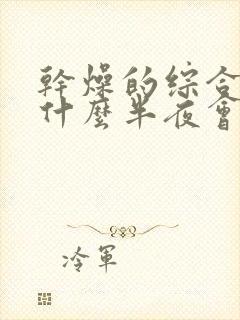 幹燥的综合
什麼半夜會
冷軍